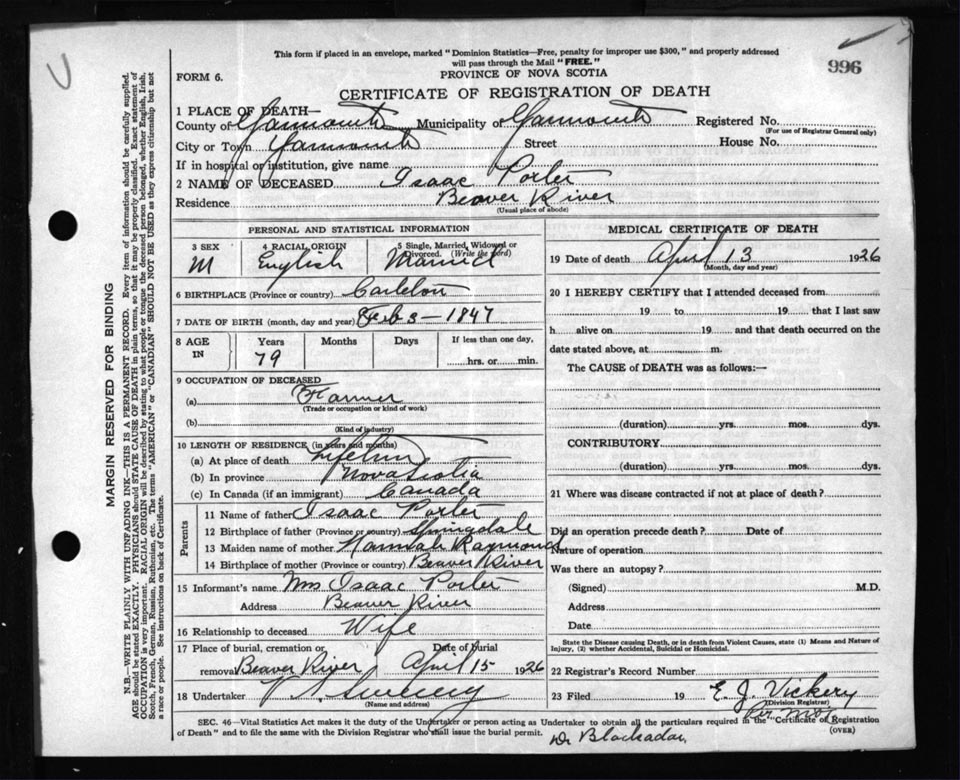 This form if placed in an envelope, marked "Dominion Statistics—Free, penalty for improper use $300," and properly addressed
will pass through the Mail "FREE."
996
FORM 6.
PROVINCE OF NOVA SCOTIA
CERTIFICATE OF REGISTRATION OF DEATH
1 PLACE OF DEATH—
County of Yarmouth Municipality of Yarmouth Registered No.
(For use of Registrar General only)
City or Town Yarmouth Street House No.
If in hospital or institution, give name
2 NAME OF DECEASED Isaac Porter
Residence Beaver River
(Usual place of abode)
PERSONAL AND STATISTICAL INFORMATION
3 SEX 4 RACIAL ORIGIN 5 Single, Married, Widowed or
Divorced. (Write the word)
M English Married
6 BIRTHPLACE (Province or country) Carleton
7 DATE OF BIRTH (month, day and year) Feb 3 - 1847
8 AGE IN Years Months Days If less than one day,
79 hrs. or min.
9 OCCUPATION OF DECEASED
(a) Farmer
(Trade or occupation or kind of work)
(b)
(Kind of industry)
10 LENGTH OF RESIDENCE (in years and months)
(a) At place of death Lifetime
(b) In province Nova Scotia
(c) In Canada (if an immigrant) Canada
Parents
11 Name of father Isaac Porter
12 Birthplace of father (Province or country)
13 Maiden name of mother Hannah Raymond
14 Birthplace of mother (Province or country) Beaver River
15 Informant's name Mrs Isaac Porter
Address Beaver River
16 Relationship to deceased Wife
17 Place of burial, cremation or removal Beaver River Date of burial April 15 1926
18 Undertaker
(Name and address)
MEDICAL CERTIFICATE OF DEATH
19 Date of death April 13 1926
(Month, day and year)
20 I HEREBY CERTIFY that I attended deceased from
19 to 19 that I last saw
h alive on 19 and that death occurred on the
date stated above, at m.
The CAUSE of DEATH was as follows:—
(duration) yrs. mos. dys.
CONTRIBUTORY
(duration) yrs. mos. dys.
21 Where was disease contracted if not at place of death?
Did an operation precede death? Date of
Nature of operation
Was there an autopsy?
(Signed) M.D.
Address
Date
State the Disease causing Death, or in death from Violent Causes, state (1) Means and Nature of
Injury, (2) whether Accidental, Suicidal or Homicidal.
22 Registrar's Record Number
23 Filed 19 E. J. Vickery
(Division Registrar)
SEC. 46—Vital Statistics Act makes it the duty of the Undertaker or person acting as Undertaker to obtain all the particulars required in the "Certificate of Registration
of Death" and to file the same with the Division Registrar who shall issue the burial permit.
(OVER)
Dr Blackadar
MARGIN RESERVED FOR BINDING
N.B.—WRITE PLAINLY WITH UNFADING INK—THIS IS A PERMANENT RECORD. Every item of information should be carefully supplied.
AGE should be stated EXACTLY. PHYSICIANS should STATE CAUSE OF DEATH in plain terms, so that it may be properly classified. Exact statement of
OCCUPATION is very important. RACIAL ORIGIN will be described by stating to what people or tongue the deceased person belonged, whether English, Irish,
Scotch, French, German, Russian, Ruthenian, etc. The terms "AMERICAN" or "CANADIAN" SHOULD NOT BE USED as they express citizenship but not
a race or people. See instructions on back of Certificate.